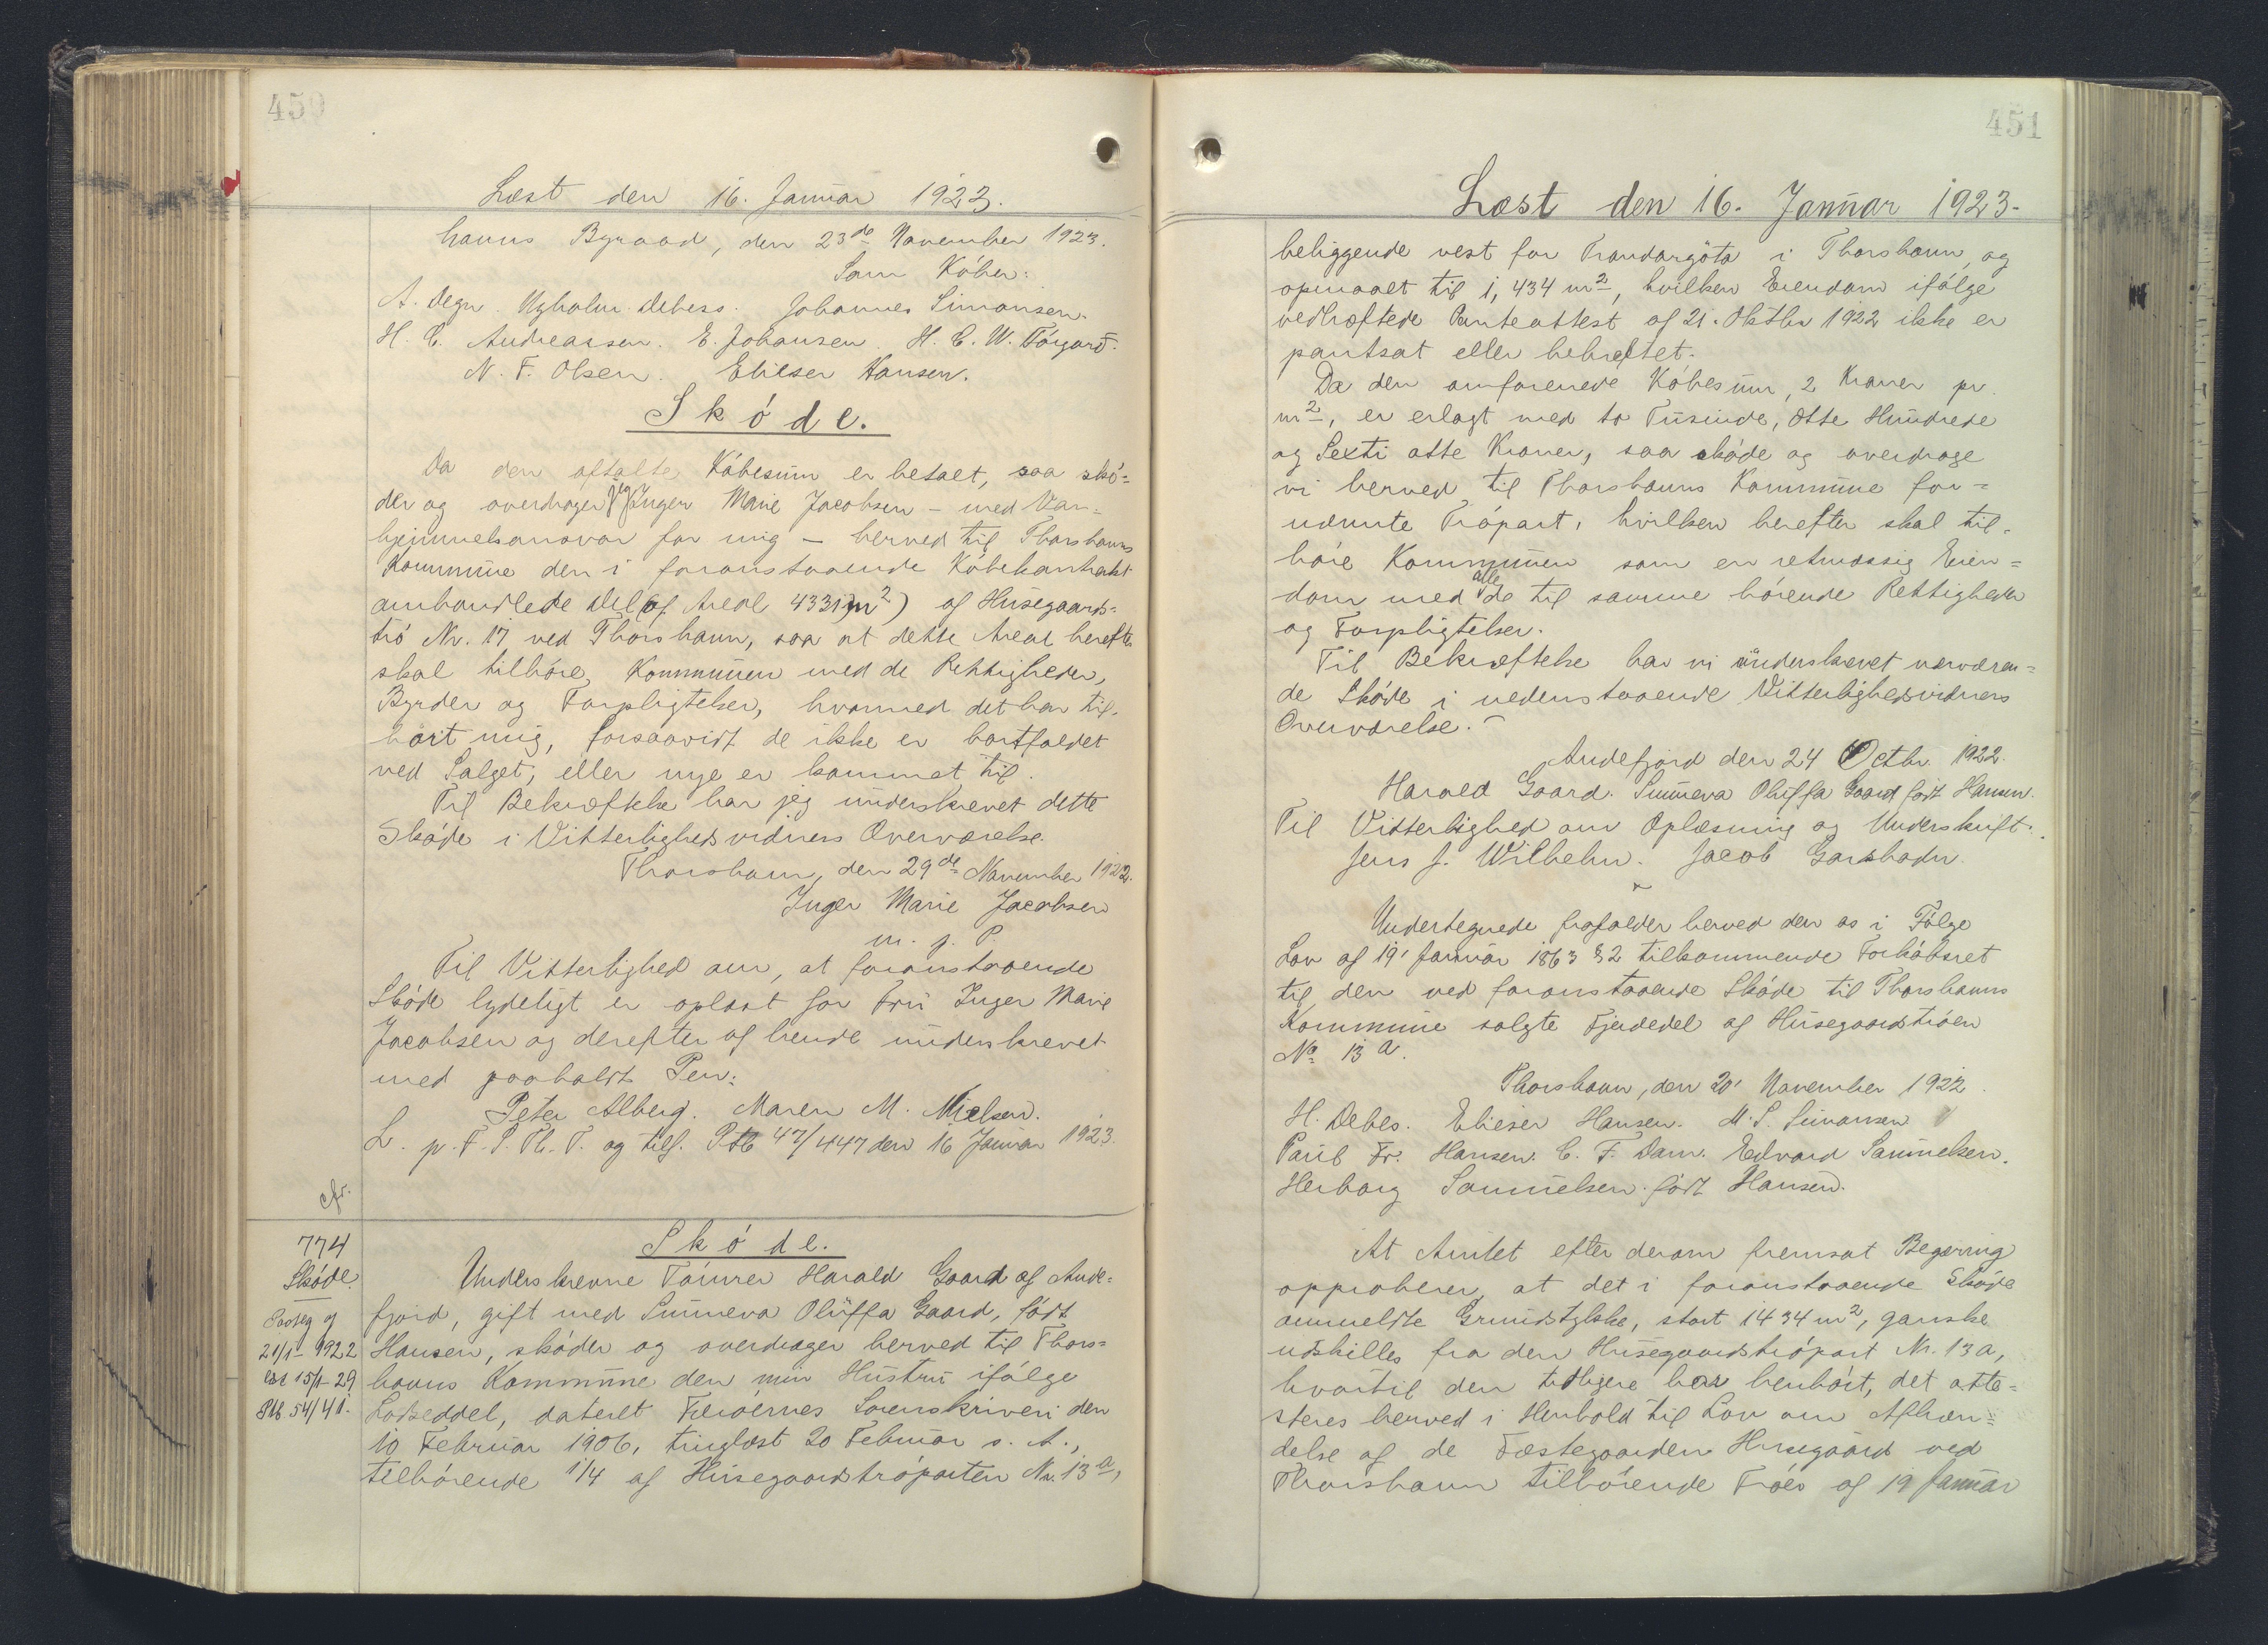 450
Læst den 16. Januar 1923.
havns Byraad, den 23de November 1923.
Som Køber:
A. Degn. Ugholm Debess. Johannes Simonsen.
H. C. Andreassen. E. Johansen. H. C. W. Tórgarð.
N. F. Olsen. Elieser Hansen.
Skóde.
Da den aftalte Kóbesum er betalt, saa skó=
der og overdrager jeg Inger Marie Jacobsen – med Van=
hjemmelsansvar for mig – herved til Thorshavns
Kommune den i foranstaaende Kóbekontrakt
omhandlede Del (af Areal 4331 m2) af Husegaards=
tró Nr. 17 ved Thorshavn, saa at dette Areal herefter
skal tilhóre Kommunen med de Rettigheder,
Byrder og Forpligtelser, hvormed det har til=
hórt mig, forsaavidt de ikke er bortfaldet
ved Salget, eller nye er kommet til.
Til Bekræftelse har jeg underskrevet dette
Skóde i Vitterlighedsvidners Overværelse.
Thorshavn, den 29de November 1922.
Inger Marie Jacobsen
m. f. P.
Til Vitterlighed om, at foranstaaende
Skóde lydeligt er oplæst for Fru Inger Marie
Jacobsen og derefter af hende underskrevet
med paaholdt Pen:
Peter Alberg. Maren M. Nielsen.
L. p. F. S. Th. T. og tilf. Ptb 47/447 den 16 Januar 1923.
cfr.
774
Skóde.
21/1- 1922
15/1- 29
Ptb 54/41.
Skóde.
Underskrevne Tómrer Harald Gaard af Ande=
fjord, gift med Sunneva Oluffa Gaard, fódt
Hansen, skóder og overdrager herved til Thors=
havns Kommune den min Hustru ifólge
Lodseddel, dateret Færóernes Sorenskriveri den
10 Februar 1906, tinglæst 20 Februar s. A.,
tilhórende 1/4 af Husegaardstróparten Nr. 13a,
451
Læst den 16. Januar 1923.
beliggende vest for Trondargóta i Thorshavn, og
opmaalt til 1,434 m2, hvilken Eiendom ifólge
vedhæftede Panteattest af 21. Oktbr 1922 ikke er
pantsat eller behæftet.
Da den omforenede Kóbesum, 2 Kroner pr.
m2, er erlagt med to Tusinde, Otte Hundrede
og Sexti otte Kroner, saa skóde og overdrage
vi herved til Thorshavns Kommune for=
nævnte Trópart, hvilken herefter skal til=
hóre Kommunen som en retmæssig Eien=
dom med alle de til samme hórende Rettigheder
og Forpligtelser.
Til Bekræftelse har vi underskrevet nærværen=
de Skóde i nedenstaaende Vitterlighedsvidners
Overværelse.
Andefjord den 24 Octbr. 1922.
Harald Gaard. Sunneva Oluffa Gaard fódt Hansen.
Til Vitterlighed om Oplæsning og Underskrift.
Jens J. Wilhelm. Jacob Garsbadn.
Undertegnede frafalder herved den os i Fólge
Lov af 19' Januar 1863 §2 tilkommende Forkóbsret
til den ved foranstaaende Skóde til Thorshavns
Kommune solgte Fjerdedel af Husegaardstróen
No 13 a.
Thorshavn, den 20' November 1922.
H. Debes. Elieser Hansen. M. S. Simonsen
Poul Fr. Hansen. C. F. Dam. Edvard Samuelsen.
Herborg Samuelsen fódt Hansen.
At Amtet efter derom fremsat Begæring
approberer, at det i foranstaaende Skóde
ommeldte Grundstykke, stort 1434 m2, ganske
udskilles fra den Husegaardstrópart Nr. 13a,
hvortil den tidligere har henhórt, det atte=
steres herved i Henhold til Lov om Afhæn=
delse af de Fæstegaarden Husegaard ved
Thorshavn tilhórende Tróer af 19 Januar